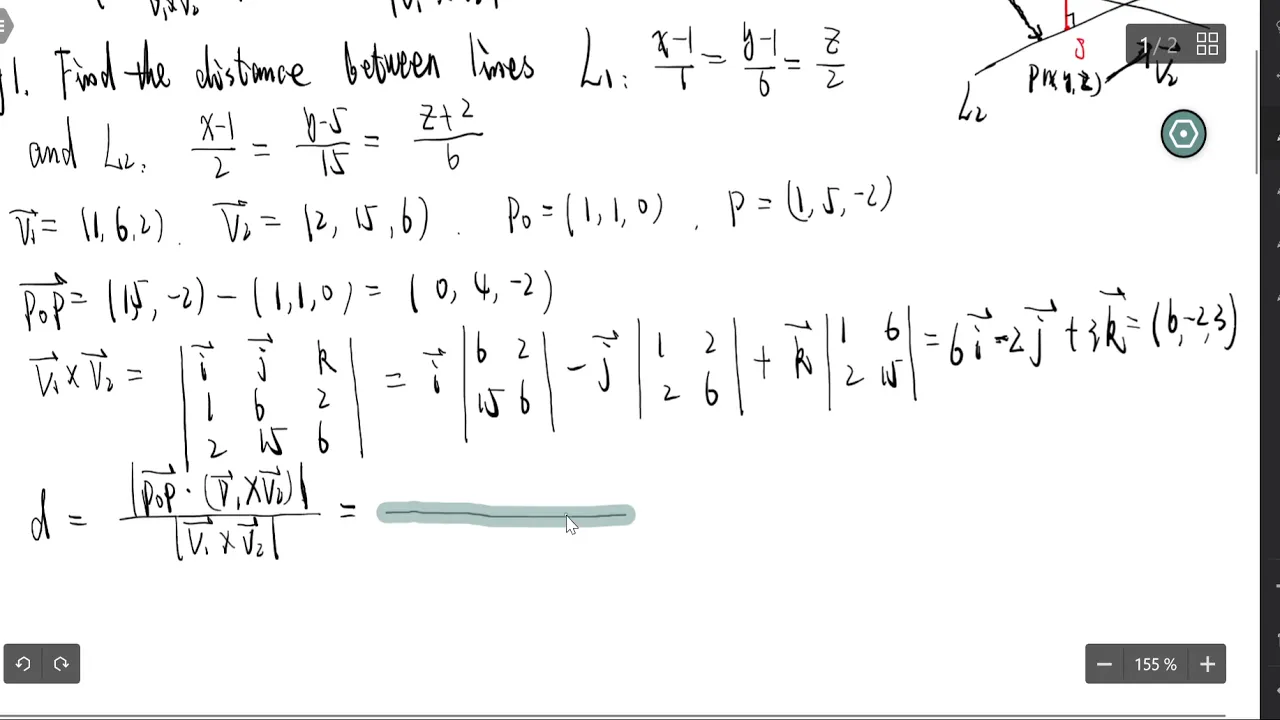 V₁×V₂
g1. Find the distance between lines L₁: (x-1)/1 = (y-1)/6 = z/2
and L₂: (x-1)/2 = (y-5)/15 = (z+2)/6
V₁→ = (1,6,2). V₂→ = (2, 15, 6). P₀ = (1, 1, 0). P = (1, 5, -2)
P₀P→ = (1 5, -2) - (1, 1, 0) = (0, 4, -2)
V₁→ × V₂→ = | i→ j→ k ; 1 6 2 ; 2 15 6 | = i→ | 6 2 ; 15 6 | - j→ | 1 2 ; 2 6 | + k→ | 1 6 ; 2 15 | = 6i→ - 2j→ + 3k→ = (6, -2, 3)
d = |P₀P→ · (V₁→ × V₂→)| / |V₁→ × V₂→| =
S
P(x, y, z)
V₂→
L₂
1 / 2
155 %